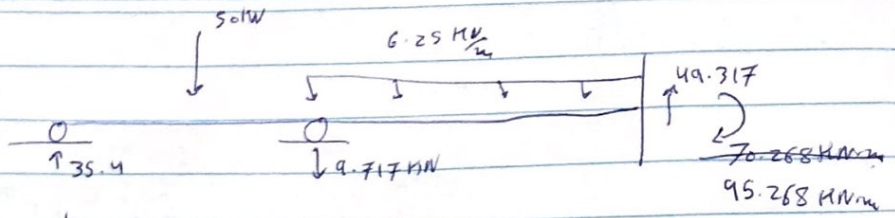 50KN
6.25 KN/m
49.317
35.4
9.717 KN
70.268 KN.m
95.268 KN.m